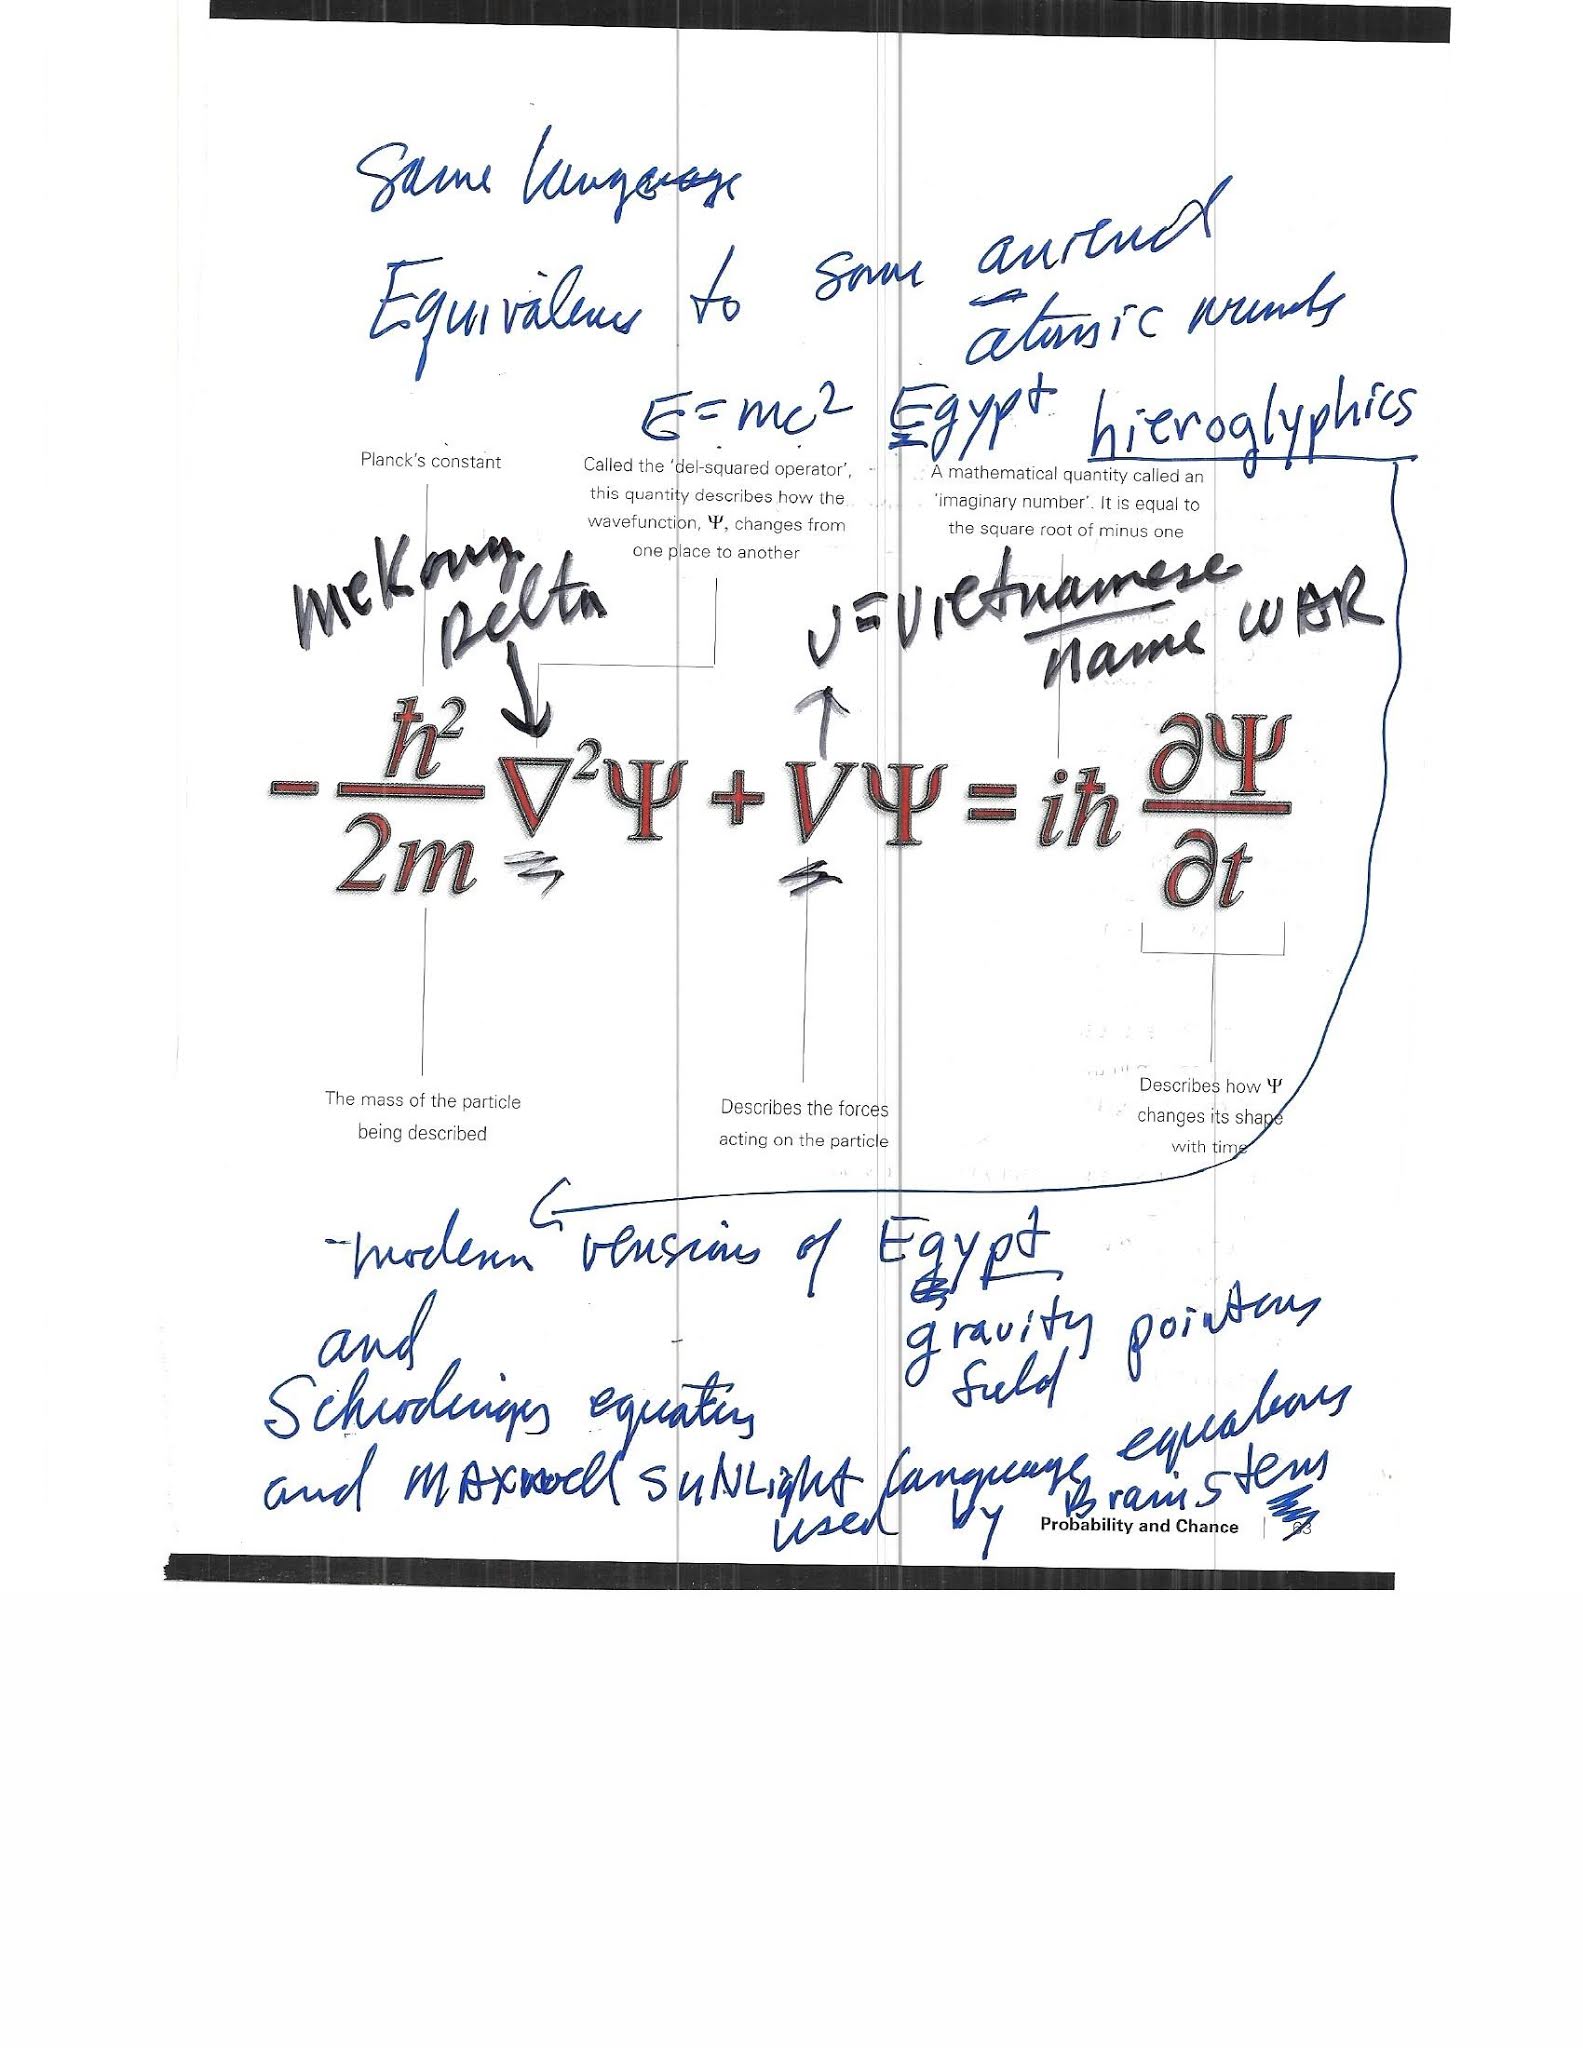 Same language
Equivalence to some ancient
atomic
E=mc² Egypt hieroglyphics
Planck's constant
Called the 'del-squared operator',
this quantity describes how the
wavefunction, Ψ, changes from
one place to another
A mathematical quantity called an
'imaginary number'. It is equal to
the square root of minus one
Mekong
Delta
V=Vietnamese
name WAR
-ħ²/2m ∇²Ψ + VΨ = iħ ∂Ψ/∂t
The mass of the particle
being described
Describes the forces
acting on the particle
Describes how Ψ
changes its shape
with time
-modern versions of Egypt
and
gravity pointers
field
Schrodingers equation
and MAXwell SUNLight language equations
used by Brain Stem
Probability and Chance | 63